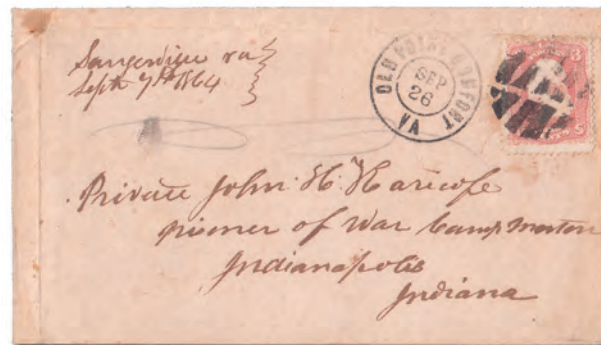 Sangerville va
Sept 7th 1864
OLD POINT COMFORT
SEP
26
VA
3
Private John H. Haricofe
prisoner of War Camp Morton
Indianapolis
Indiana